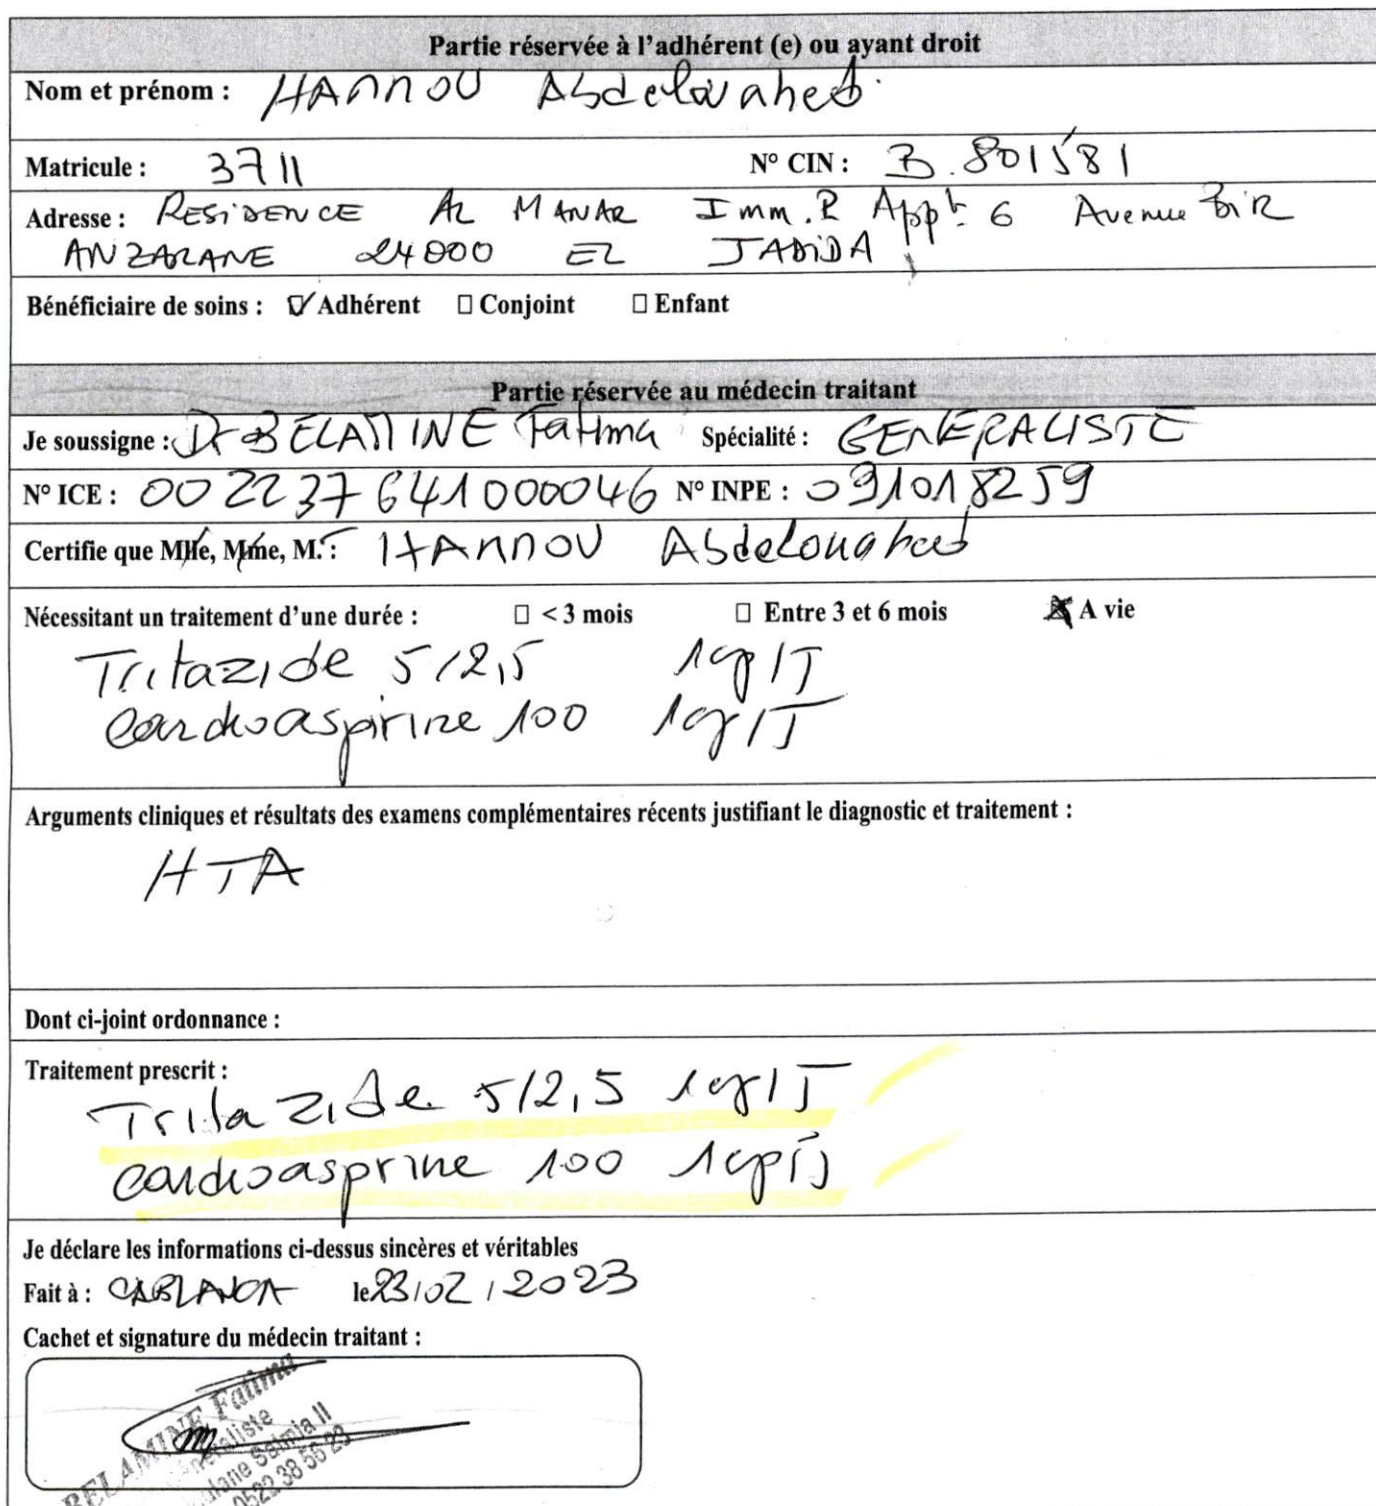 Partie réservée à l'adhérent (e) ou ayant droit
Nom et prénom : HANNOU Abdelouahed
Matricule : 3711 N° CIN : B.801581
Adresse : RESIDENCE AL MANAR Imm.R Appt 6 Avenue BIR
ANZARANE 24000 EL JADIDA
Bénéficiaire de soins : ☑ Adhérent ☐ Conjoint ☐ Enfant
Partie réservée au médecin traitant
Je soussigne : Dr BELAMINE Fatima Spécialité : GENERALISTE
N° ICE : 002237641000046 N° INPE : 091018259
Certifie que Mlle, Mme, M. : HANNOU Abdelouahed
Nécessitant un traitement d'une durée : ☐ < 3 mois ☐ Entre 3 et 6 mois ☒ A vie
Tritazide 5/2,5 1cp/J
Cardioaspirine 100 1cp/J
Arguments cliniques et résultats des examens complémentaires récents justifiant le diagnostic et traitement :
HTA
Dont ci-joint ordonnance :
Traitement prescrit :
Tritazide 5/2,5 1cp/J
cardioasprine 100 1cp/j
Je déclare les informations ci-dessus sincères et véritables
Fait à : CABLANCA le 23/02/2023
Cachet et signature du médecin traitant :
BELAMINE Fatima
Salmia II
0522 38 56 23